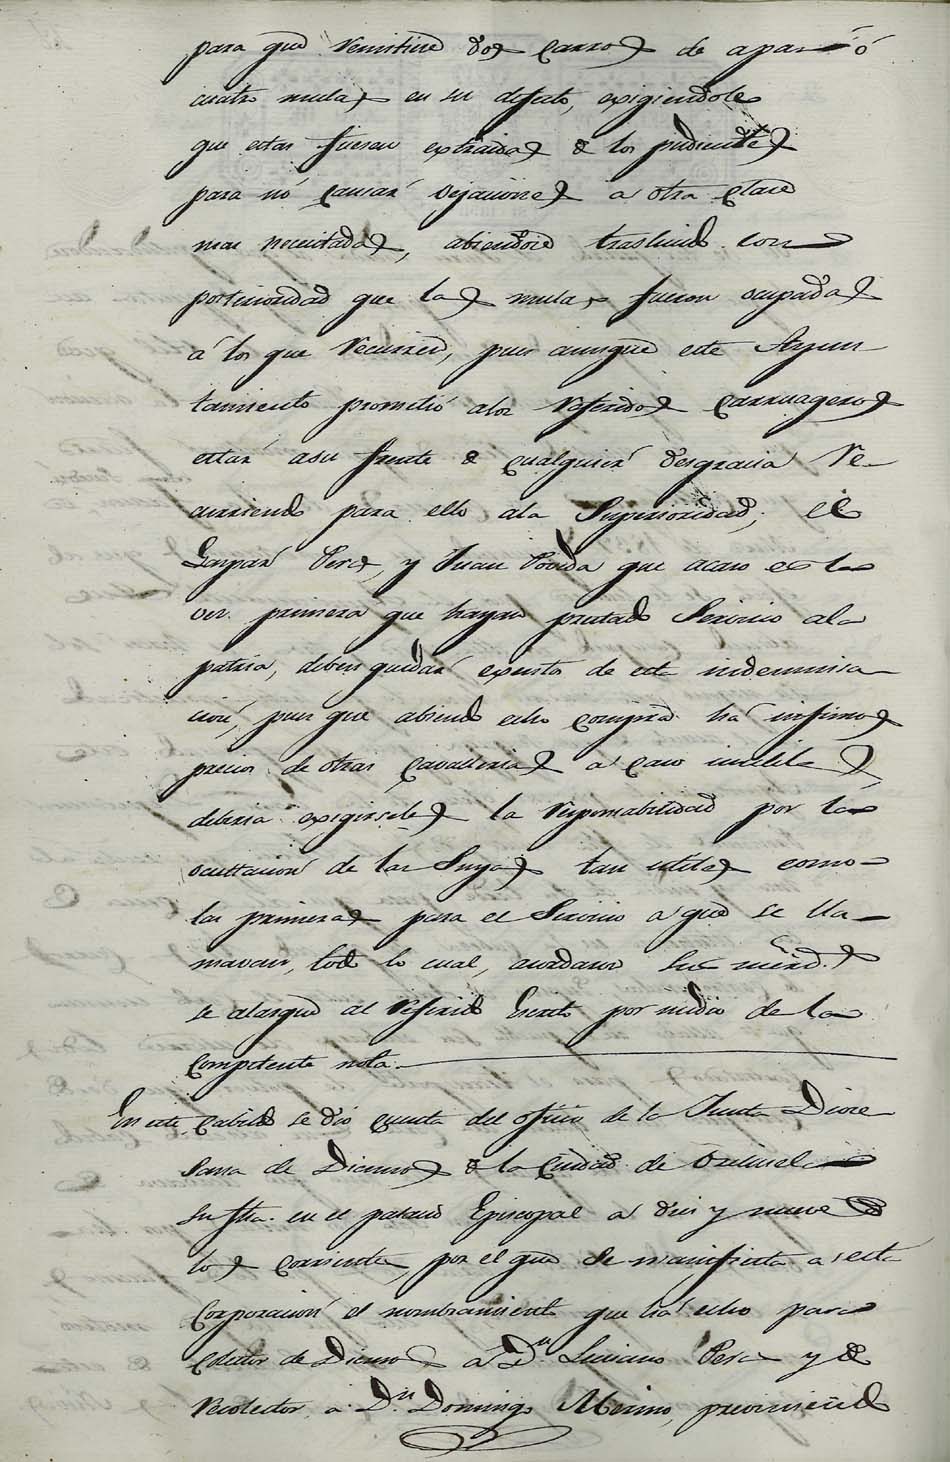 para que remitiere dos carros de apar ó
cuatro mulas en su defecto, exigiendole
que estas fuesen extraidas de los pudientes
para nó causar vejaciones a otra clase
mas necesitadas, abiendose traslucido con
posterioridad que las mulas fueron ocupadas
á los que recurren, pues aunque este Ayun
tamiento prometió alos referidos carruageros
estar asu frente de cualquier desgracia re-
curriendo para ello ala Superioridad; el
Gaspar Perez, y Juan Poveda que acaso es la
vez primera que hayan prestado Servicio ala
patria, deben quedar exentos de esta indemnisa
cion, pues que abiendo echo compra há infimos
precios de otras Cavallerias a caso inutiles
deberia exigirseles la responsabilidad por la
ocultacion de las Suyas tan utiles como
las primeras para el Servicio a que se lla-
mavan, todo lo cual, acordaron sus merds.
se alargue al referido Escrito por medio de la
competente nota.
En este Cabildo se dió cuenta del oficio de la Junta Dioce
sana de Diezmos de la Ciudad de Orihuela
su fha. en el palacio Episcopal a diez y nueve de
los corrientes, por el que se manifiesta a esta
Corporacion el nombramiento que há echo para
Colector de Diezmos á Dn. Luciano Perez y de
recolector a Dn. Domingo Merino, previniendo